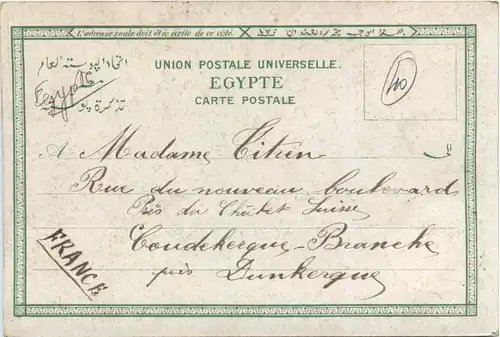 L'adresse seule doit être écrite de ce côté.
اتحاد البوسته العام
UNION POSTALE UNIVERSELLE.
Egypte
EGYPTE
تذكرة بو
CARTE POSTALE
40
A Madame Titren
Rue du nouveau boulevard
Près du Châlet Suisse
Coudekerque-Branche
près Dunkerque
FRANCE